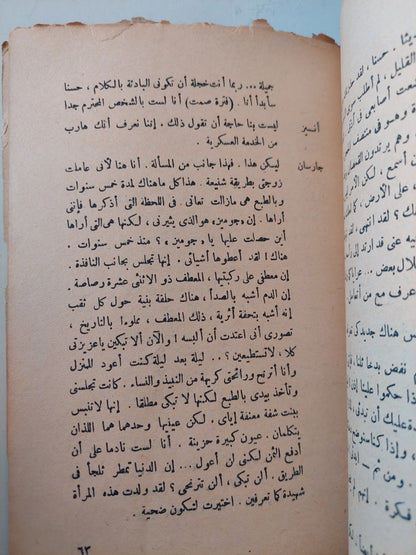 جميلة... ربما أنت خجلة أن تكونى البادئة بالكلام، حسنا
سأبدأ أنا. (فترة صمت) أنا لست بالشخص المحترم جدا
أنسيز ليست بنا حاجة أن تقول ذلك. إننا نعرف أنك هارب
من الخدمة العسكرية.
جارسان ليكن هذا. فهذا جانب من المسألة. أنا هنا لأنى عاملت
زوجتى بطريقة شنيعة. هذا كل ما هناك لمدة خمس سنوات
وبالطبع هى مازالت تعانى. فى اللحظة التى أذكرها فإننى
أراها. إن «جوميز» هو الذى يثيرنى، لكنها هى التى أراها
أين حصلت عليها يا «جوميز»؟ منذ خمس سنوات.
هناك! لقد أعطوها أشيائى. إنها تجلس بجانب النافذة.
إن معطفى على ركبتيها، المعطف ذو الاثنى عشرة رصاصة.
إن الدم أشبه بالصدأ، هناك حلقة بنية حول كل ثقب
إنه أشبه بتحفة أثرية، ذلك المعطف، مملوءا بالتاريخ،
تصورى أنى اعتدت أن ألبسه! والآن ألا تبكين يا عزيزتى
كلا، لا تستطيعين؟.. ليلة بعد ليلة كنت أعود للمنزل
وأنا أترنح ورائحتى كريهة من النبيذ والنساء. كانت تجلسنى
وتأخذ بيدى بالطبع لكنها لا تبكى مطلقا. إنها لا تنبس
ببنت شفة معنفة إياى، لكن عينيها وحدهما هما اللذان
يتكلمان، عيون كبيرة حزينة. أنا لست نادما على أن
أدفع الثمن لكنى لن أعول... إن الدنيا تمطر ثلجا فى
الطريق. ألن تبكى، ألن تترنحى؟ لقد ولدت هذه المرأة
شهيدة كما تعرفين. اختيرت لتكون ضحية.
٦٣